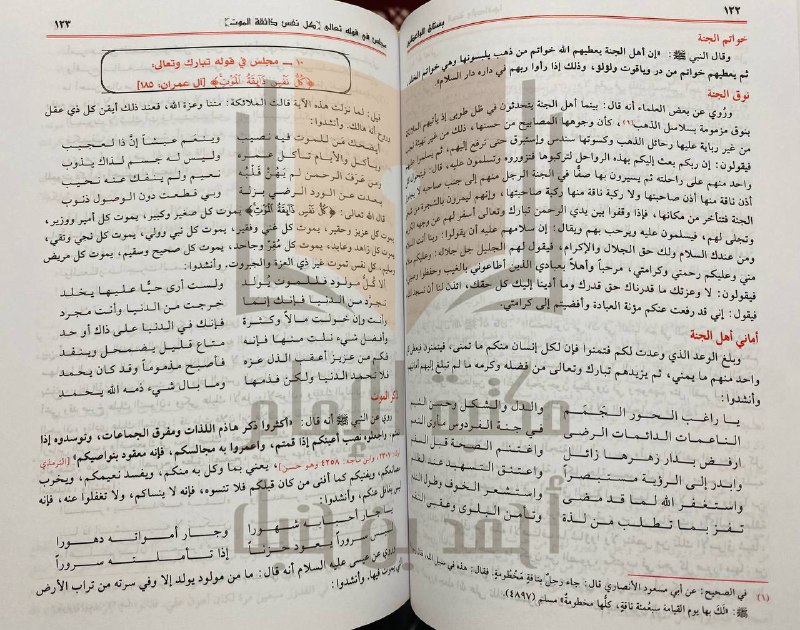 ١٢٢
بستان الواعظين
خواتم الجنة
وقال النبي ﷺ: «إن أهل الجنة يعطيهم الله خواتم من ذهب يلبسونها وهي خواتم الخلد
ثم يعطيهم خواتم من در وياقوت ولؤلؤ، وذلك إذا رأوا ربهم في داره دار السلام».
نوق الجنة
ورُوي عن بعض العلماء أنه قال: بينما أهل الجنة يتحدثون في ظل طوبى إذ يأتيهم الملائكة
بنوق مزمومة بسلاسل الذهب(١)، كأن وجوهها المصابيح من حسنها، ذلك من غير
من غير رباية عليها رحائل الذهب وكسوتها سندس وإستبرق حتى ترفع إليهم، ثم يسلموا عليهم
فيقولون: إن ربكم بعث إليكم بهذه الرواحل لتركبوها فتزوروه وتسلمون عليه، قال:
واحد منهم على راحلته ثم يسيرون بها صفًّا في الجنة الرجل منهم إلى جنب صاحبه لا
أذن ناقة منها أذن صاحبتها ولا ركبة ناقة منها ركبة صاحبتها، وإنهم ليمرون بالشجرة من
الجنة فتتأخر من مكانها، فإذا وقفوا بين يدي الرحمن تبارك وتعالى أسفر لهم عن وجهه
وتجلى لهم، فيسلمون عليه ويرحب بهم ويقال: إن سلامهم عليه أن يقولوا: ربنا أنت السلام
ومن عندك السلام ولك حق الجلال والإكرام، فيقول لهم الجليل جل جلاله: عليكم
مني وعليكم رحمتي وكرامتي، مرحباً وأهلاً بعبادي الذين أطاعوني بالغيب وحفظوا
فيقولون: لا وعزتك ما قدرناك حق قدرك وما أدينا إليك كل حقك، ائذن لنا أن نسجد
فيقول: إني قد رفعت عنكم مؤنة العبادة وأفضيتم إلى كرامتي.
أماني أهل الجنة
وبلغ الوعد الذي وعدت لكم فتمنوا فإن لكل إنسان منكم ما تمنى، فيتمنون
واحد منهم ما يمني، ثم يزيدهم تبارك وتعالى من فضله وكرمه ما لم تبلغ إليهم أمانيهم
وأنشدوا:
يا راغب الحور الجَمَم والدل والشكل وحسن
الناعمات الدائمات الرضى في جنة الفردوس مأوى
ارفض بدار زهرها زائل واغتنم الصحة قبل
وابدر إلى الرؤية مستبصراً واعتنق التسهيد عند
واستغفر الله لما قد مضى واستشعر الخوف وطول
تفز بما تطلب من لذة وتأمن البلوى وعقبى
(١) في الصحيح: عن أبي مسعود الأنصاري قال: جاء رجل بناقةٍ مَخْطُومةٍ. فقال: هذه في سبيل الله، فقال
ﷺ: «لَكَ بها يوم القيامة سبعُمئة ناقةٍ، كلُّها مخطومةٌ» مسلم (٤٨٩٧).
مجلس في قوله تعالى [كل نفس ذائقة الموت]
١٢٣
١٠ ـ مجلس في قوله تبارك وتعالى:
﴿كُلُّ نَفْسٍ ذَآئِقَةُ الْمَوْتِ﴾ [آل عمران: ١٨٥]
قيل: لما نزلت هذه الآية قالت الملائكة: متنا وعزة الله، فعند ذلك أيقن كل ذي عقل
وروح أنه هالك. وأنشدوا:
أيضحك مَن للموت فيه نصيب وينعم عيشاً إنَّ ذا لعجيب
ويأكل والأيام تأكل عمره وليس له جسم لذاك يذوب
ومن عَرَف الرحمن لم يَهْنَ قلْبُه نعيم ولم ينفك عنه نحيب
وبعدك عن الورد الرضي بزلة وبي قطعت دون الوصول ذنوب
قال الله تعالى: ﴿كُلُّ نَفْسٍ ذَآئِقَةُ الْمَوْتِ﴾ يموت كل صغير وكبير، يموت كل أمير ووزير،
يموت كل عزيز وحقير، يموت كل غني وفقير، يموت كل نبي وولي، يموت كل نجي وتقي،
يموت كل زاهد وعابد، يموت كل مُقِرّ وجاحد، يموت كل صحيح وسقيم، يموت كل مريض
وسليم، كل نفس تموت غير ذي العزة والجبروت. وأنشدوا:
ألا كُلُّ مولود فللموت يُولد ولست أرى حيًّا عليها يخلد
تجرَّد من الدنيا فإنك إنما خرجت من الدنيا وأنت مجرد
وأنت وإن خولت مالاً وكثرة فإنك في الدنيا على ذاك أو حد
وأفضل شيء نلت منها فإنه متاع قليل يضمحل وينفد
فكم من عزيز أعقب الذل عزه فأصبح مذموماً وقد كان يحمد
فلا تحمد الدنيا ولكن فذمها وما بال شيء ذمه الله يحمد
ذكر الموت
روي عن النبي ﷺ أنه قال: «أكثروا ذكر هاذم اللذات ومفرق الجماعات، وتوسدوه إذا
نمتم، واجعلوه نصب أعينكم إذا قمتم، واعمروا به مجالسكم، فإنه معقود بنواصيكم» [الترمذي
٢٣٠٧، وابن ماجه: ٤٢٥٨ وهو حسن]، يعني بما وكل به منكم، ويفسد نعيمكم، ويخرب
مصانعكم، ويفنيكم كما أفنى من كان قبلكم فلا تنسوه، فإنه لا ينساكم، ولا تغفلوا عنه، فإنه
ليس بغافل عنكم، وأنشدوا:
يا جار أحبابه شهورا وجار أمواته دهورا
ليس سروراً يعود حزناً إذا تأملته سروراً
وروي عن عيسى عليه السلام أنه قال: ما من مولود يولد إلا وفي سرته من تراب الأرض
التي يموت فيها. وأنشدوا:
مكتبة الإمام
أحمد بن حنبل